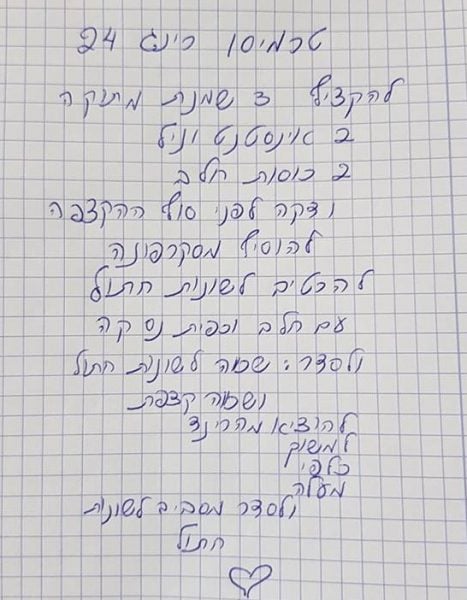 טרמיסו רינג 24
להקציף 3 שמנת מתוקה
2 אינסטנט וניל
2 כוסות חלב
ודקה לפני סוף ההקצפה
להוסיף מסקרפונה
להרטיב לשונות חתול
עם חלב וכפית נס קה
ולסדר: שכבה לשונות חתול
ושכבה קצפת
להוציא מהרינג
למשוך
כלפי
מעלה
ולסדר מסביב לשונות
חתול